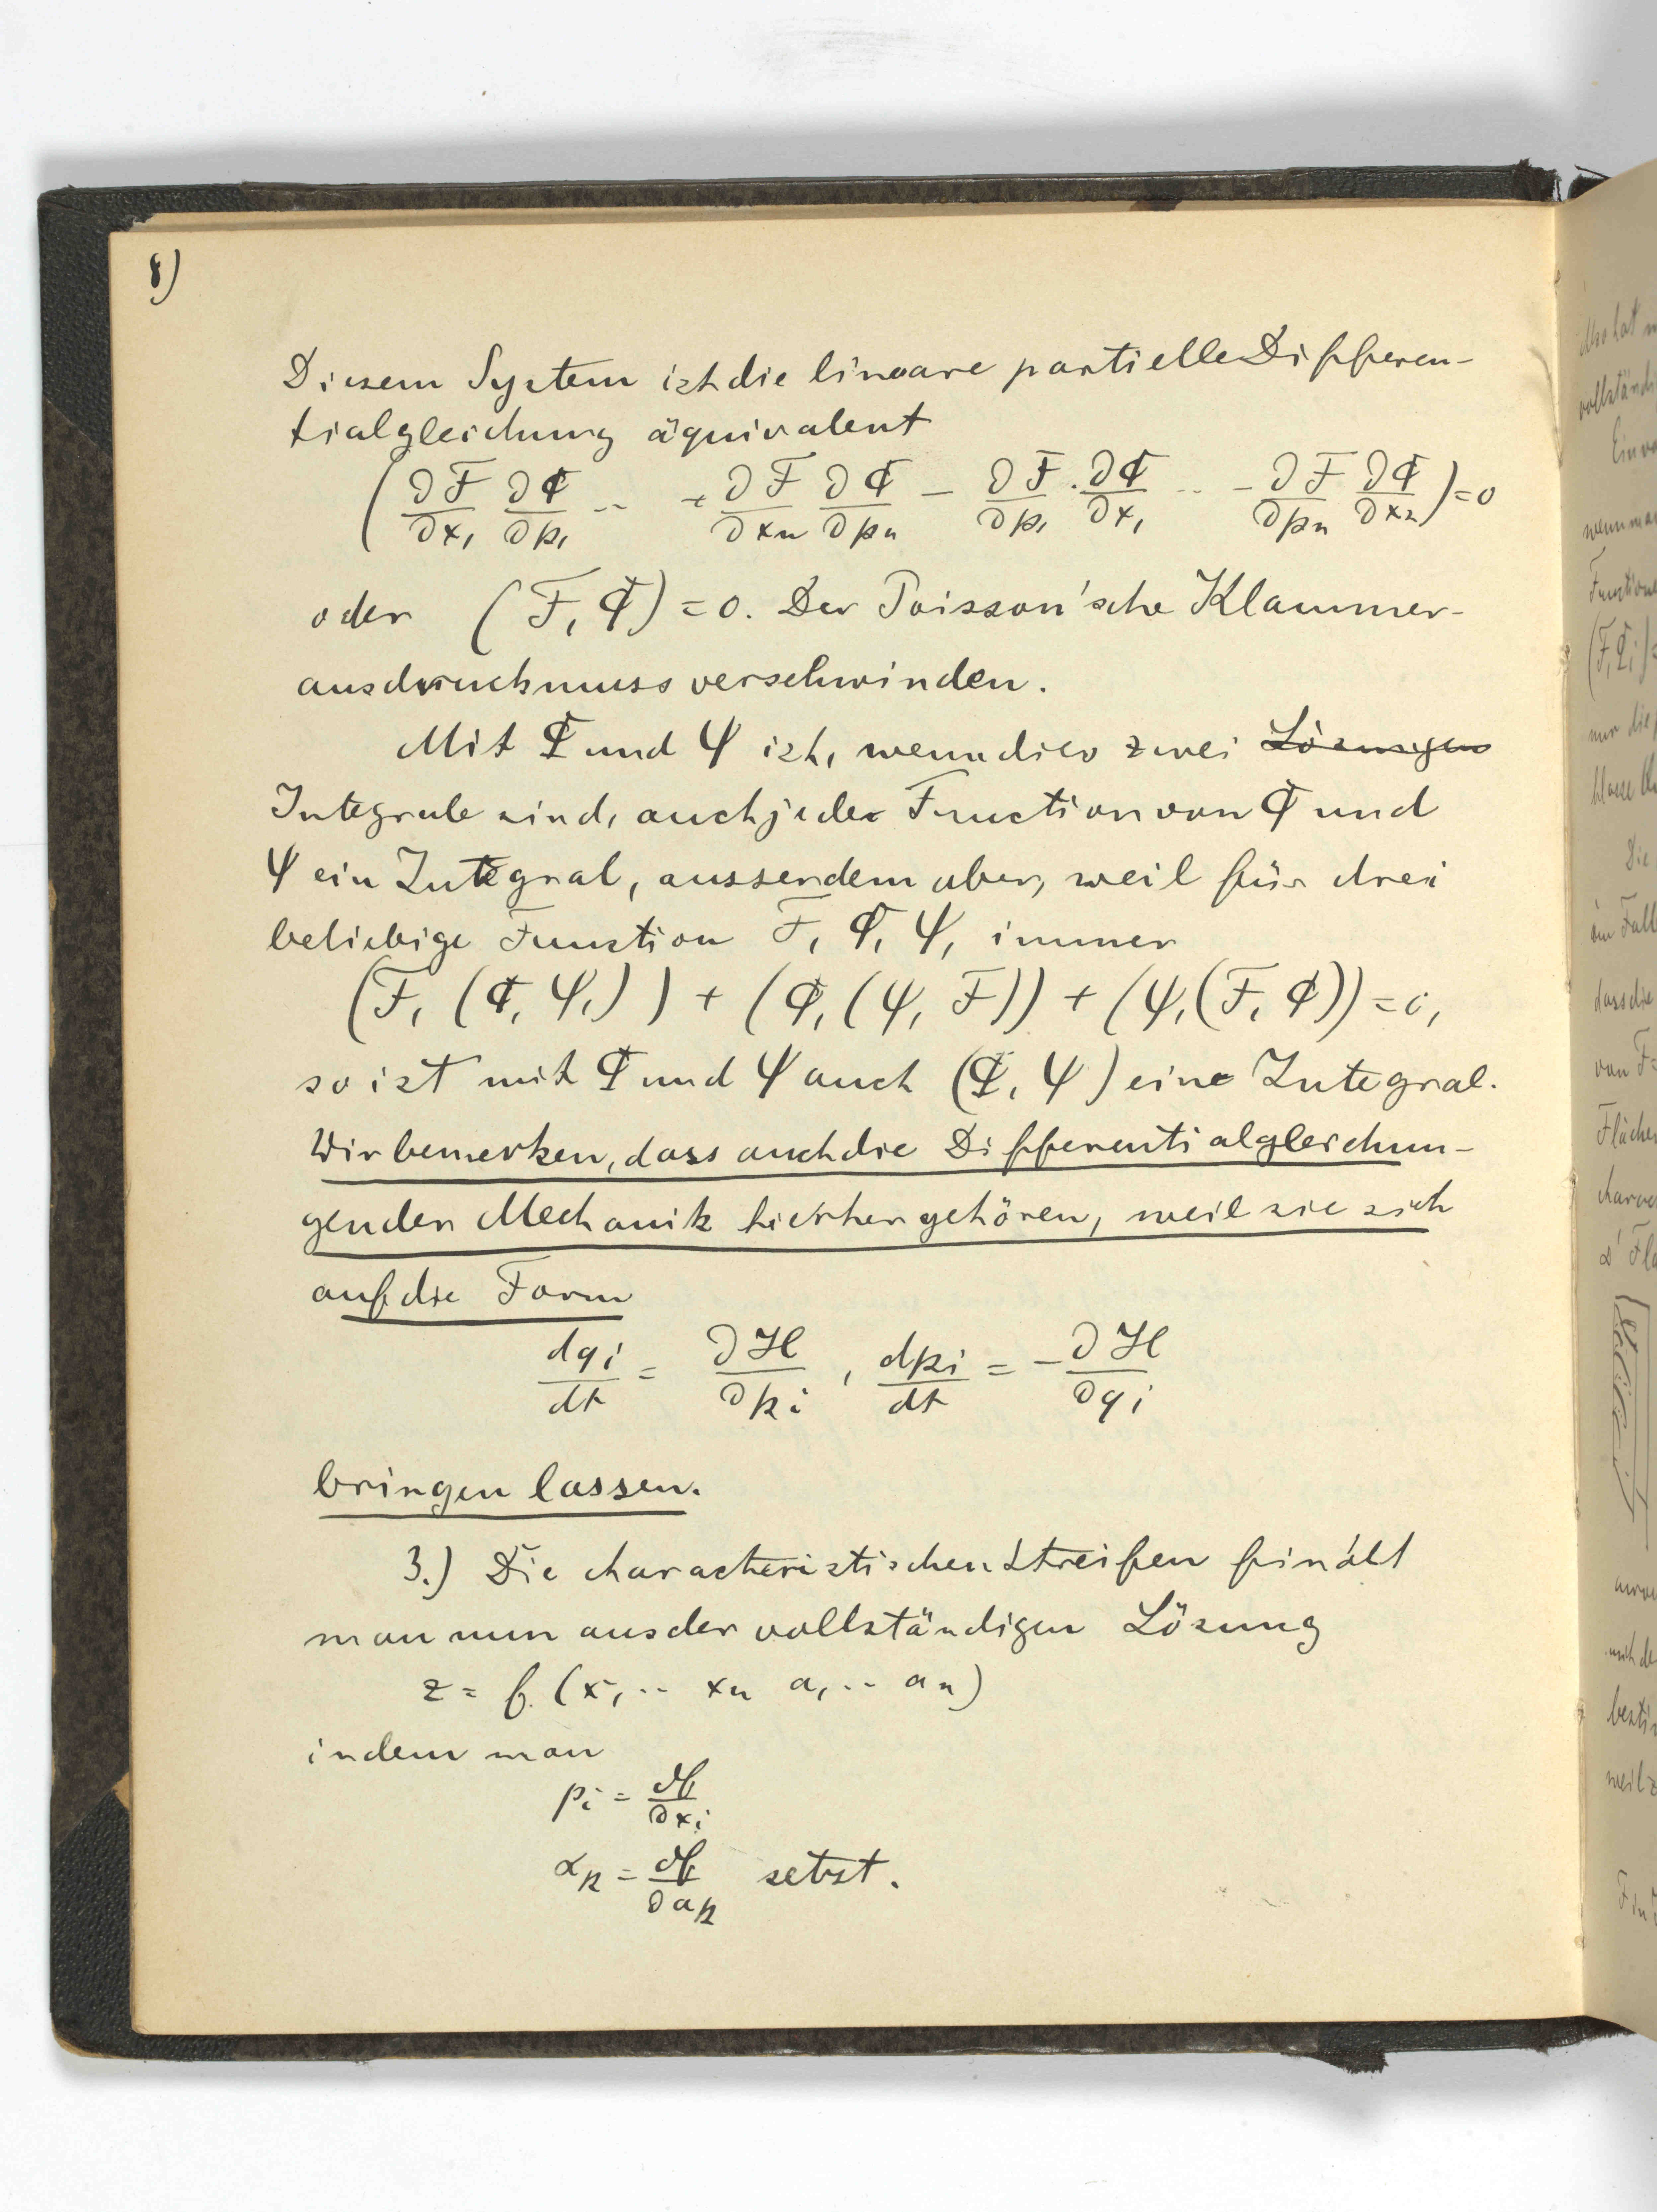 8)
Diesem System ist die lineare partielle Differen-
tialgleichung äquivalent
(∂F/∂x₁ ∂Φ/∂p₁ ·· + ∂F/∂xₙ ∂Φ/∂pₙ − ∂F/∂p₁ · ∂Φ/∂x₁ ·· − ∂F/∂pₙ ∂Φ/∂xₙ) = 0
oder (F, Φ) = 0. Der Poisson'sche Klammer-
ausdruck muss verschwinden.
Mit Φ und Ψ ist, wenn dies zwei Lösungen
Integrale sind, auch jede Function von Φ und
Ψ ein Integral, ausserdem aber, weil für drei
beliebige Funktion F, Φ, Ψ, immer
(F, (Φ, Ψ,)) + (Φ, (Ψ, F)) + (Ψ, (F, Φ)) = 0,
so ist mit Φ und Ψ auch (Φ, Ψ) ein Integral.
Wir bemerken, dass auch die Differentialgleichun-
gen der Mechanik hierher gehören, weil sie sich
auf die Form
dqi/dt = ∂H/∂pi , dpi/dt = −∂H/∂qi
bringen lassen.
3.) Die characteristischen Streifen findet
man nun aus der vollständigen Lösung
z = f (x₁ ·· xₙ a₁ ·· aₙ)
indem man
pi = ∂f/∂xi
αk = ∂f/∂ak setzt.